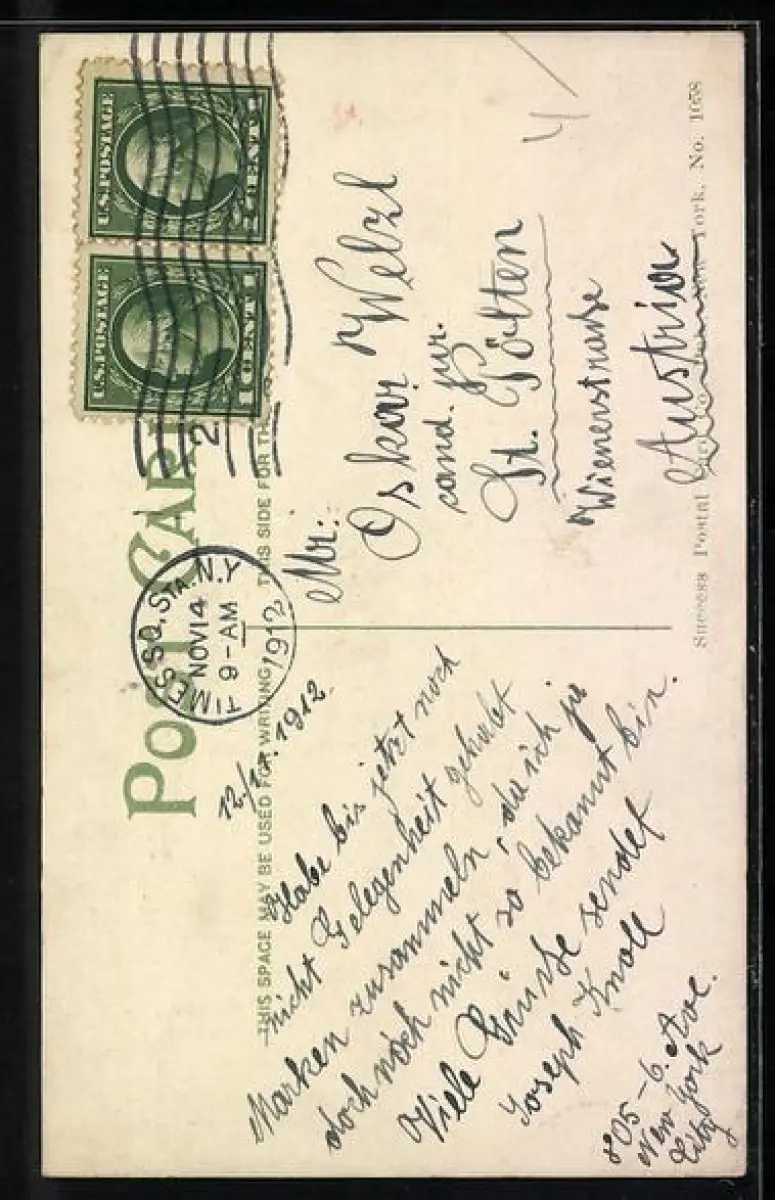 POST CARD
THIS SPACE MAY BE USED FOR WRITING
THIS SIDE FOR TH
U.S. POSTAGE
1 CENT 1
U.S. POSTAGE
1 CENT 1
TIMES SQ. STA. N.Y
NOV 14
9-AM
1912
2
12./11. 1912.
Habe bis jetzt noch
nicht Gelegenheit gehabt
Marken zusammeln, da ich ja
doch noch nicht so bekannt bin.
Viele Grüsse sendet
Joseph Knoll
805 - 6. Ave.
New York
City
Mr:
Oskar Welzl
cand. jur.
St. Pölten
Wienerstraße
Austria
Success Postal Card Co. New York, No. 1058